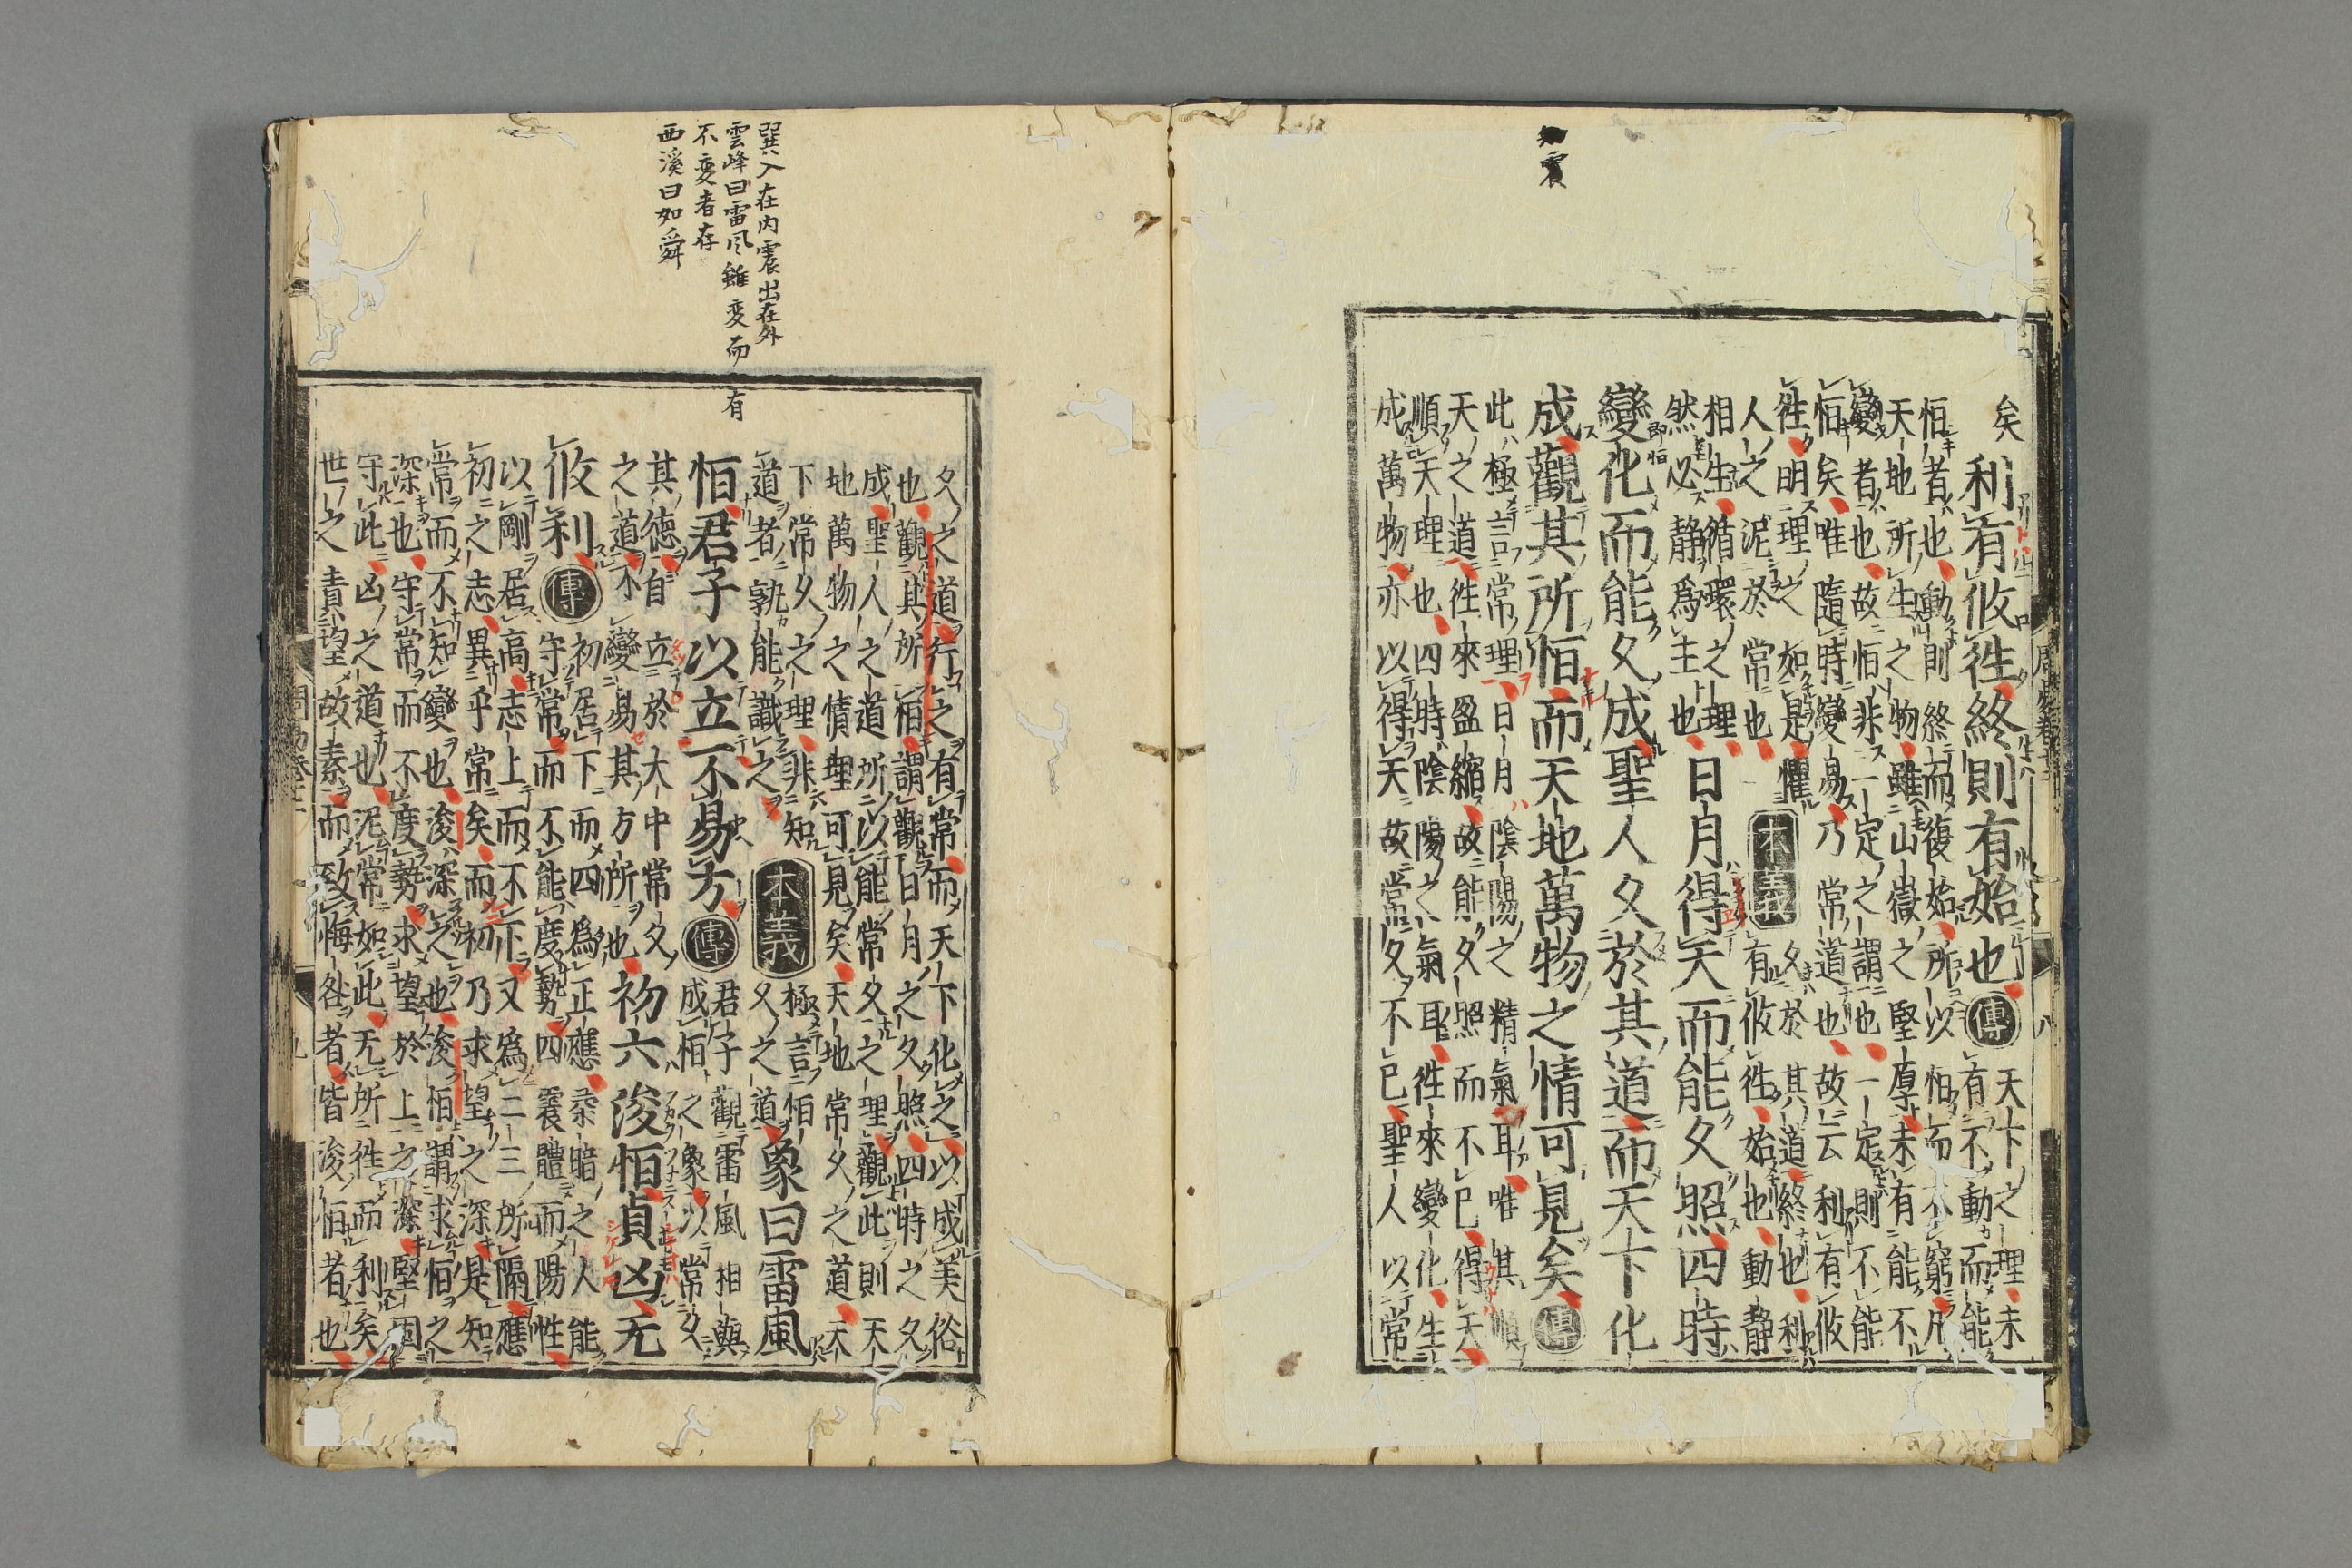 矣
利有攸往終則有始也傳
天下之理未
有不動而能
恒者也動則終而復始所以恒而不窮凡
天地所生之物雖山嶽之堅厚未有能不
變者也故恒非一定之謂也一定則不能
恒矣唯隨時變易乃常道也故云利有攸
往明理之如是懼
人之泥於常也
本義
久於其道終也利
有攸往始也動靜
相生循環之理
然必静爲主也
即恒
日月得天而能久照四時
變化而能久成聖人久於其道而天下化
成觀其所恒而天地萬物之情可見矣傳
此極言常理日月陰陽之精氣耳唯其順
天之道往來盈縮故能久照而不已得天
順天理也四時陰陽之氣耳往來變化生
成萬物亦以得天故常久不已聖人以常
巽入在内震出在外
雲峰曰雷风雖変而有
不変者存
西溪曰如舜
久之道行之有常而天下化之以成美俗
也觀其所恒謂觀日月之久照四時之久
成聖人之道所以能常久之理觀此則天
地萬物之情理可見矣天地常久之道天
下常久之理非知
道者孰能識之
本義
極言恒
久之道
象曰雷風
恒君子以立不易方傳
君子觀雷風相與
成恒之象以常久
其德自立於大中常久
之道不變易其方所也
初六浚恒貞凶无
攸利傳
初居下而四爲正應柒暗之人能
守常而不能度勢四震體而陽性
以剛居高志上而不下又爲二三所隔應
初之志異乎常矣而初乃求望之深是知
常而不知變也浚深之也浚恒謂求恒之
深也守常而不度勢求望於上之深堅固
守此凶之道也泥常如此无所往而利矣
世之責望故素而致悔咎者皆浚恒者也